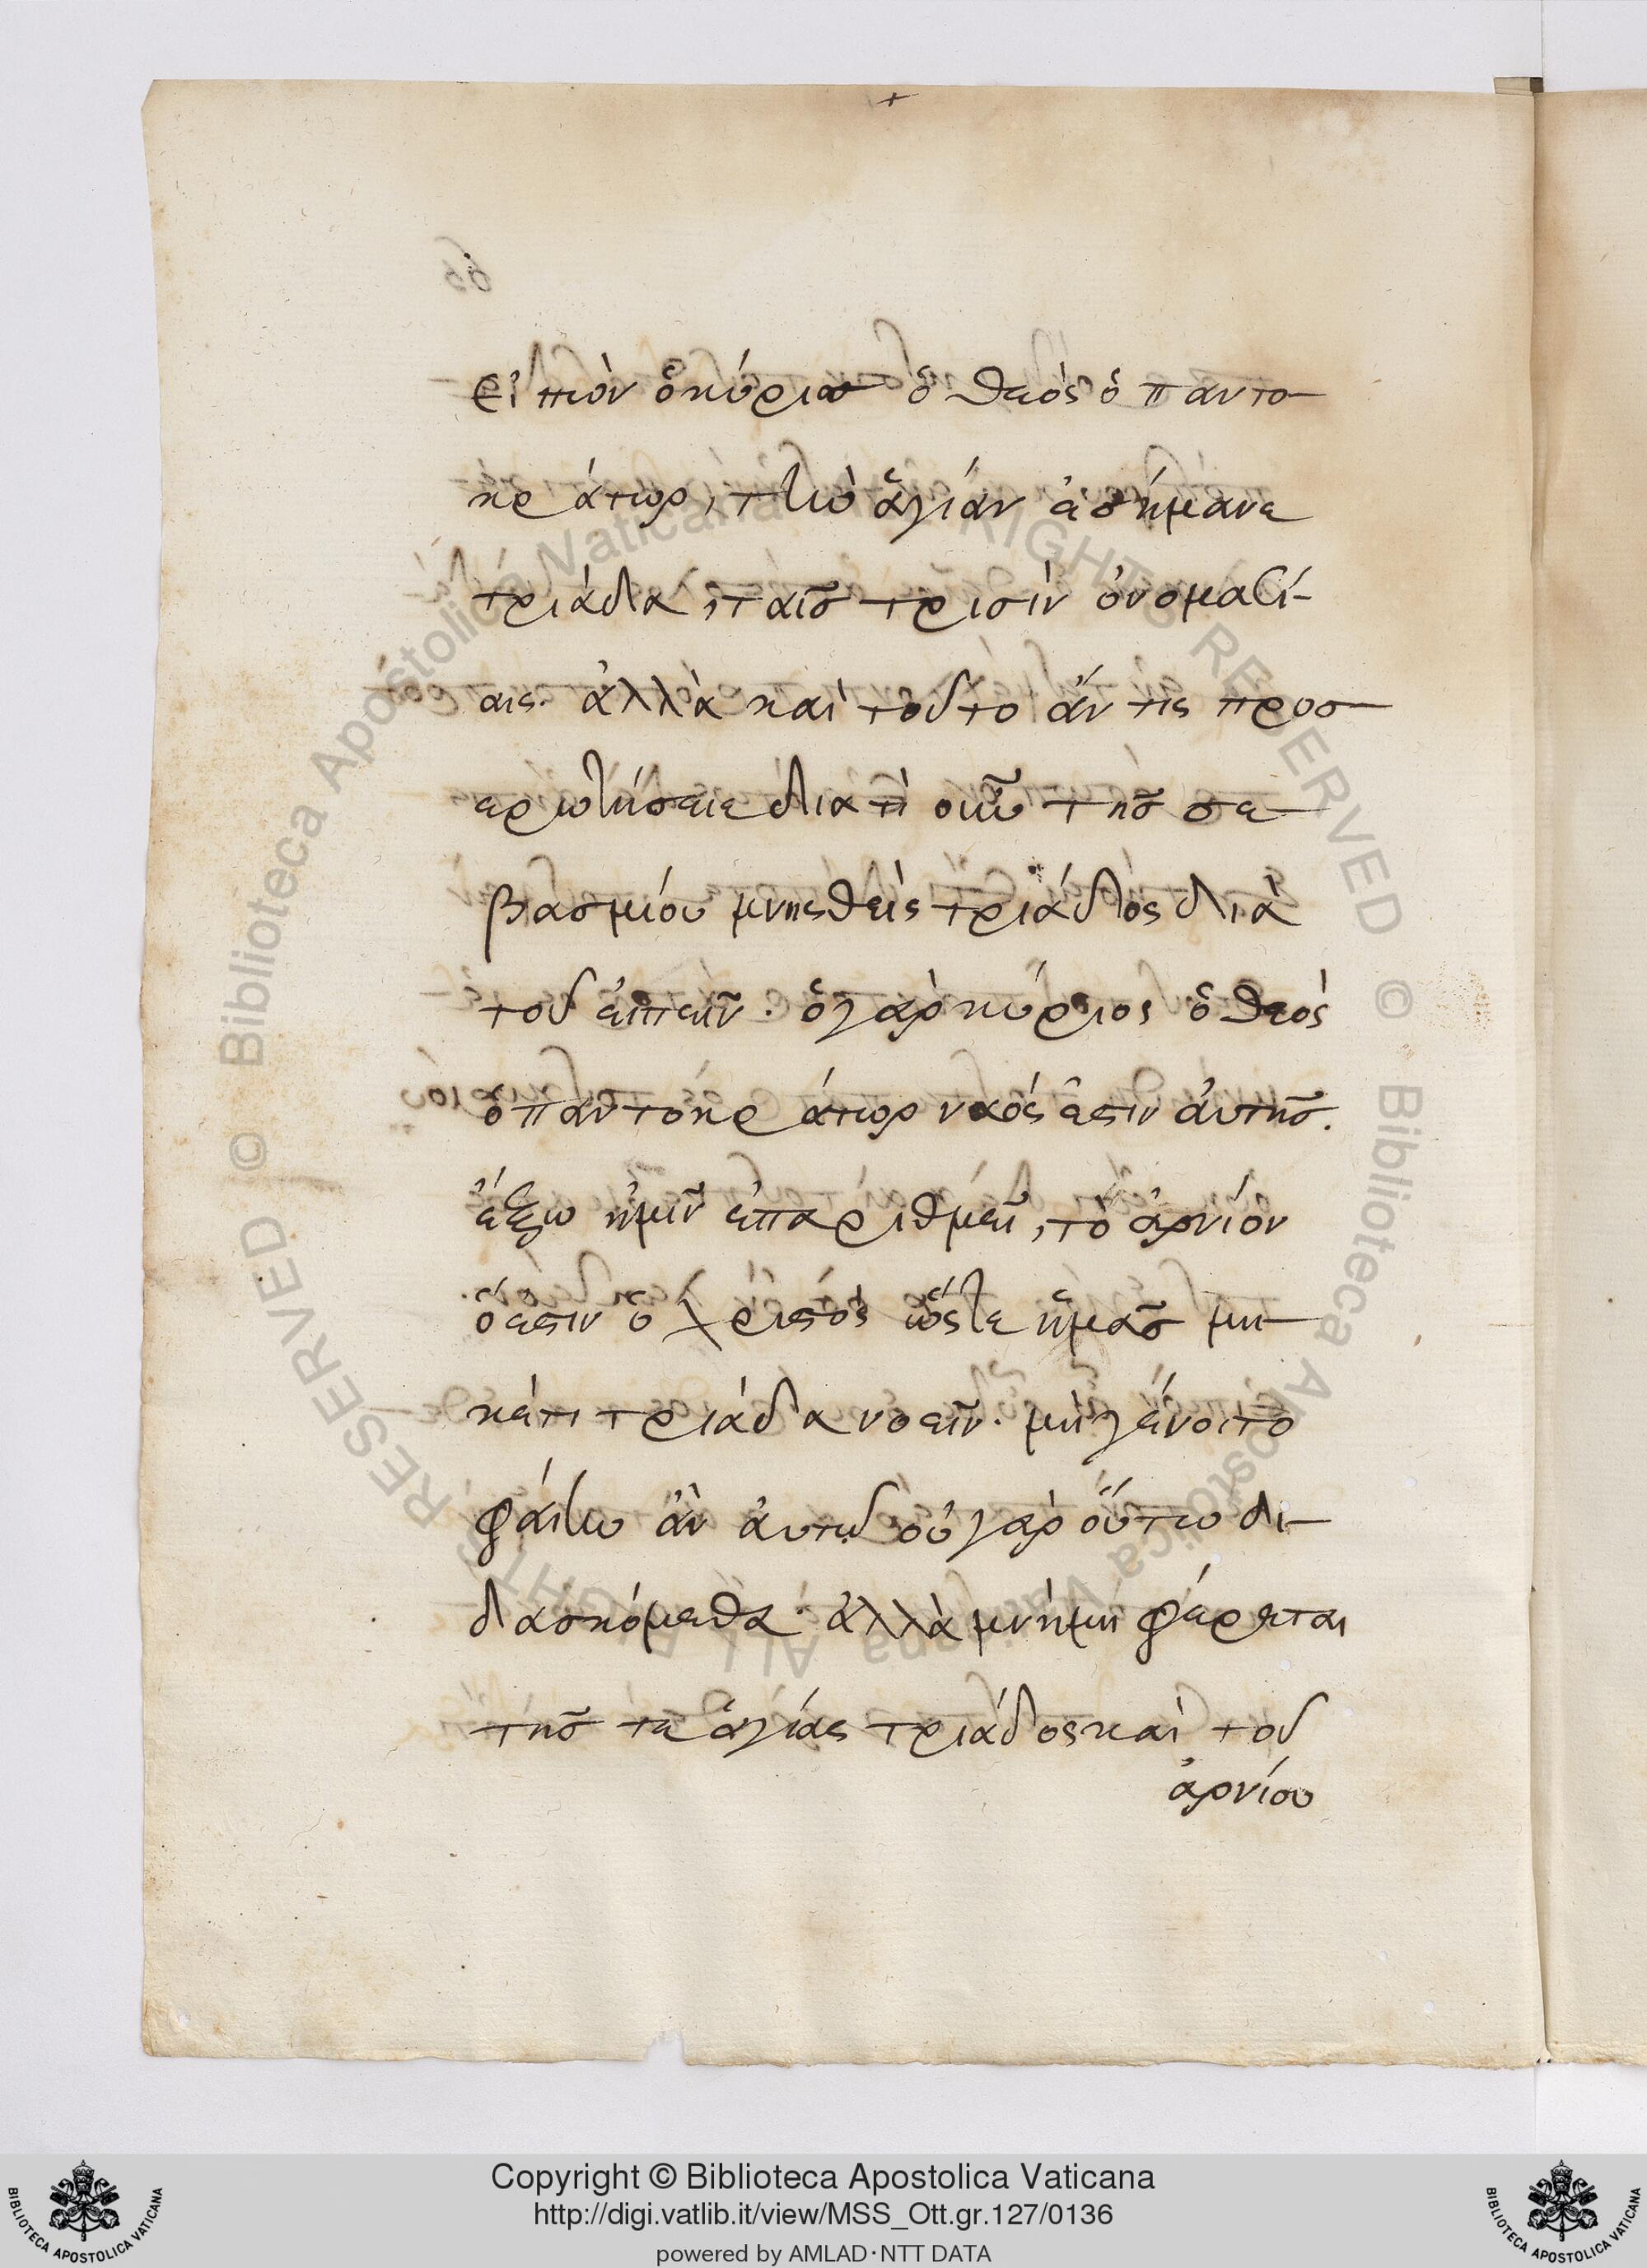 εἰπὼν ὁ κύριος ὁ θεός ὁ παντο-
κράτωρ, τὴν ἁγίαν ἐσήμανε
τριάδα, ταῖς τρισὶν ὀνομασί-
αις. ἀλλὰ καὶ τοῦτο ἄν τις προσ-
ερωτήσειε διατί οὖν τῆς σε-
βασμίου μνησθεὶς τριάδος διὰ
τοῦ εἰπεῖν. ὁ γὰρ κύριος ὁ θεός
ὁ παντοκράτωρ ναός ἐστιν ἀυτῆς.
ἔξω ἡμῖν ἐπαριθμεῖ, τὸ ἀρνίον
ὅ ἐστιν ὁ χριστὸς ὥστε ἡμᾶς μη-
κέτι τριάδα νοεῖν. μὴ γένοιτο
φάτω ἂν ἀυτῷ οὐ γὰρ οὕτω δι-
δασκόμεθα. ἀλλὰ μνήμη φέρεται
τῆς τε ἁγίας τριάδος καὶ τοῦ
ἀρνίου
Copyright © Biblioteca Apostolica Vaticana
http://digi.vatlib.it/view/MSS_Ott.gr.127/0136
powered by AMLAD·NTT DATA
BIBLIOTECA APOSTOLICA VATICANA
BIBLIOTECA APOSTOLICA VATICANA
© Biblioteca Apostolica Vaticana ALL RIGHTS RESERVED © Biblioteca Apostolica Vaticana ALL RIGHTS RESERVED